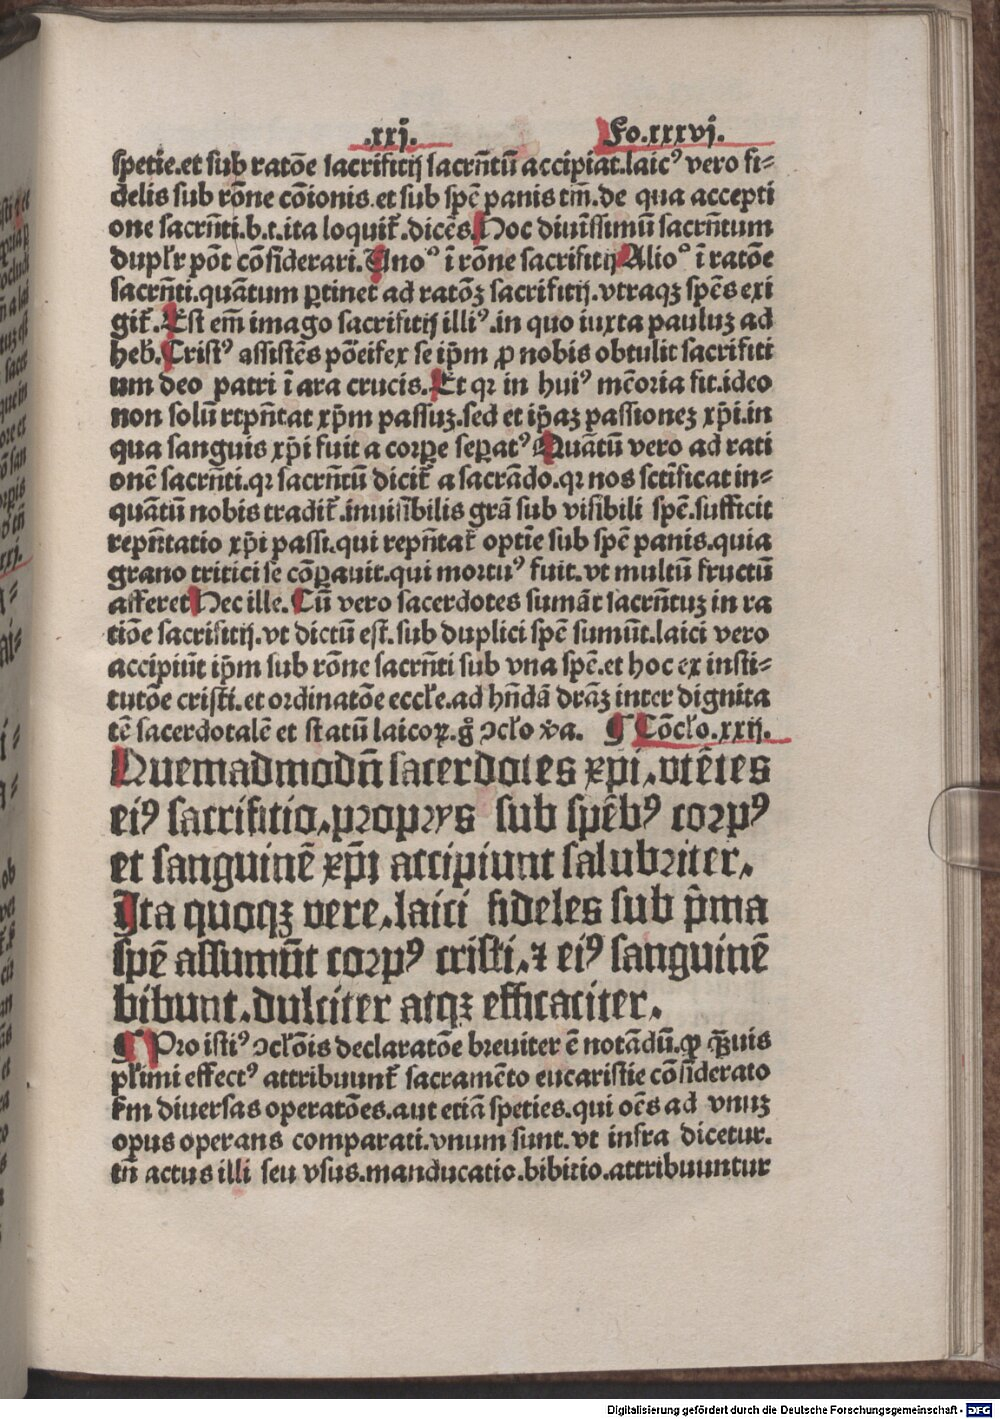 .xxj. Fo.xxxvj.
spetie.et sub ratōe sacrifitij sacrn̄tū accipiat.laicꝰ vero fi-
delis sub rōne cōionis.et sub spē panis tm̄.de qua accepti
one sacrn̄ti.b.t.ita loquit̃.dicēs.Hoc diuīssimū sacrn̄tum
duplr̃ pōt cōsiderari.Unoº ī rōne sacrifitij Alioº ī ratōe
sacrn̄ti.quātum ꝑtinet ad ratōꝫ sacrifitij.vtraqꝫ spēs exi
git̃.Est em̄ imago sacrifitij illiꝰ.in quo iuxta pauluꝫ ad
heb̃.Cristꝰ assistēs pōtifex se ip̄m ꝓ nobis obtulit sacrifiti
um deo patri ī ara crucis.Et qꝛ in huiꝰ mēoria fit.ideo
non solū rep̄n̄tat xp̄m passuꝫ.sed et ip̄aꝫ passioneꝫ xp̄i.in
qua sanguis xp̄i fuit a corꝑe seꝑatꝰ Quātū vero ad rati
onē sacrn̄ti.qꝛ sacrn̄tū dicit̃ a sacrādo.qꝛ nos sctīficat in-
quātū nobis tradit̃.inuisibilis grā sub visibili spē.sufficit
repn̄tatio xp̄i passi.qui repn̄tat̃ optīe sub spē panis.quia
grano tritici se cōꝑauit.qui mortuꝰ fuit.vt multū fructū
afferet Hec ille.Cū vero sacerdotes sumāt sacrn̄tuꝫ in ra
tiōe sacrifitij.vt dictū est.sub duplici spē sumūt.laici vero
accipiūt ip̄m sub rōne sacrn̄ti sub vna spē.et hoc ex insti-
tutōe cristi.et ordinatōe eccłe.ad hn̄dā drāꝫ inter dignita
tē sacerdotalē et statū laicoꝝ.gͦ ɔcło v̾a. ¶ Cōcło.xxij.
Quemadmodū sacerdotes xpi.vtētes
eiꝰ sacrifitio.proprys sub spēbꝰ corpꝰ
et sanguinē xp̄i accipiunt salubriter.
Ita quoqꝫ vere.laici fideles sub p̄ma
spē assumūt corpꝰ cristi.⁊ eiꝰ sanguinē
bibunt.dulciter atqꝫ efficaciter.
¶ Pro istiꝰ ɔcłois declaratōe breuiter ē notādū.ꝙ q̄uis
płimi effectꝰ attribuunt̃ sacramēto eucaristie cōsiderato
ẜm diuersas operatōes.aut etiā speties.qui oēs ad vnuꝫ
opus operans comparati.vnum sunt.vt infra dicetur.
tn̄ actus illi seu vsus.manducatio.bibitio.attribuuntur
Digitalisierung gefördert durch die Deutsche Forschungsgemeinschaft - DFG